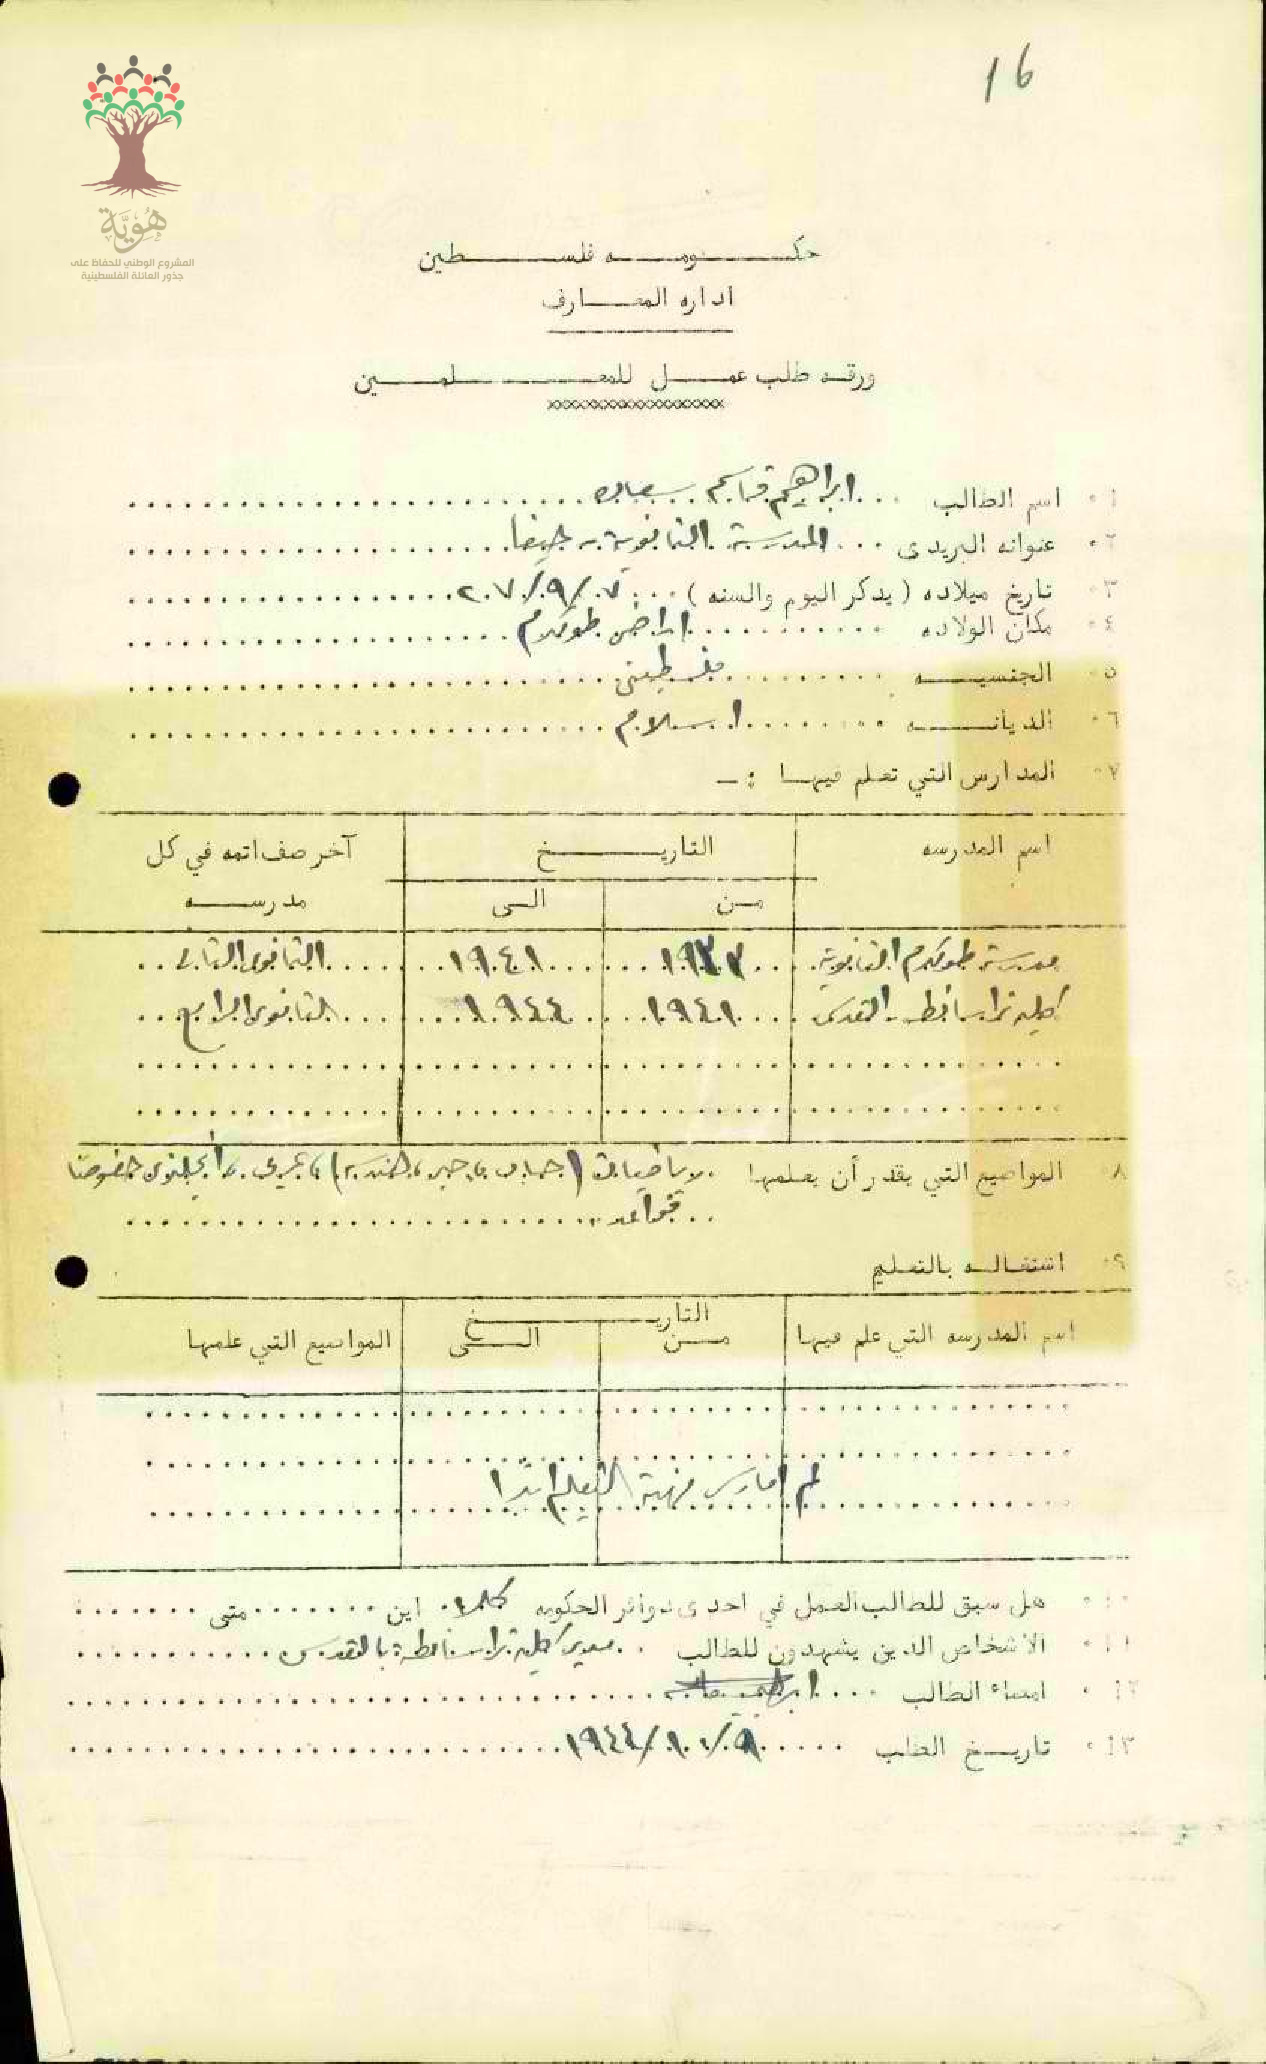 16
هُوِيَّة
المشروع الوطني للحفاظ على
جذور العائلة الفلسطينية
حكومه فلسطين
اداره المعارف
ورقه طلب عمل للمعلمين
xxxxxxxxxxxxxxxxxxxx
١٠ اسم الطالب ... ابراهيم قاسم سعاده
٢٠ عنوانه البريدى ... المدرسة الثانوية - حيفا
٣٠ تاريخ ميلاده ( يذكر اليوم والسنه ) ...
٤٠ مكان الولاده ... اراضي طولكرم
٥٠ الجنسيه ... فلسطيني
٦٠ الديانه ... اسلام
٧٠ المدارس التي تعلم فيها :-
اسم المدرسه التاريخ آخر صف اتمه في كل
من الى مدرسه
مدرسة طولكرم الثانوية ١٩٣٣ ١٩٤١ الثانوى الثاني
كلية تراسانطه - القدس ١٩٤١ ١٩٤٤ الثانوى الرابع
٨ المواضيع التي يقدر أن يعلمها رياضيات (حساب، جبر، هندسة)، عربى، انجليزى خصوصا
قواعد
٩٠ اشتغاله بالتعليم
اسم المدرسه التي علم فيها التاريخ المواضيع التي علمها
من الى
لم امارس مهنة التعليم ابدًا
١٠٠ هل سبق للطالب العمل في احدى دوائر الحكومه كلا اين ........ متى ........
١١٠ الاشخاص الذين يشهدون للطالب .. مدير كلية تراسانطة بالقدس
١٢٠ امضاء الطالب .... ابراهيم
١٣٠ تاريخ الطلب ..... /١٠/١٩٤٤